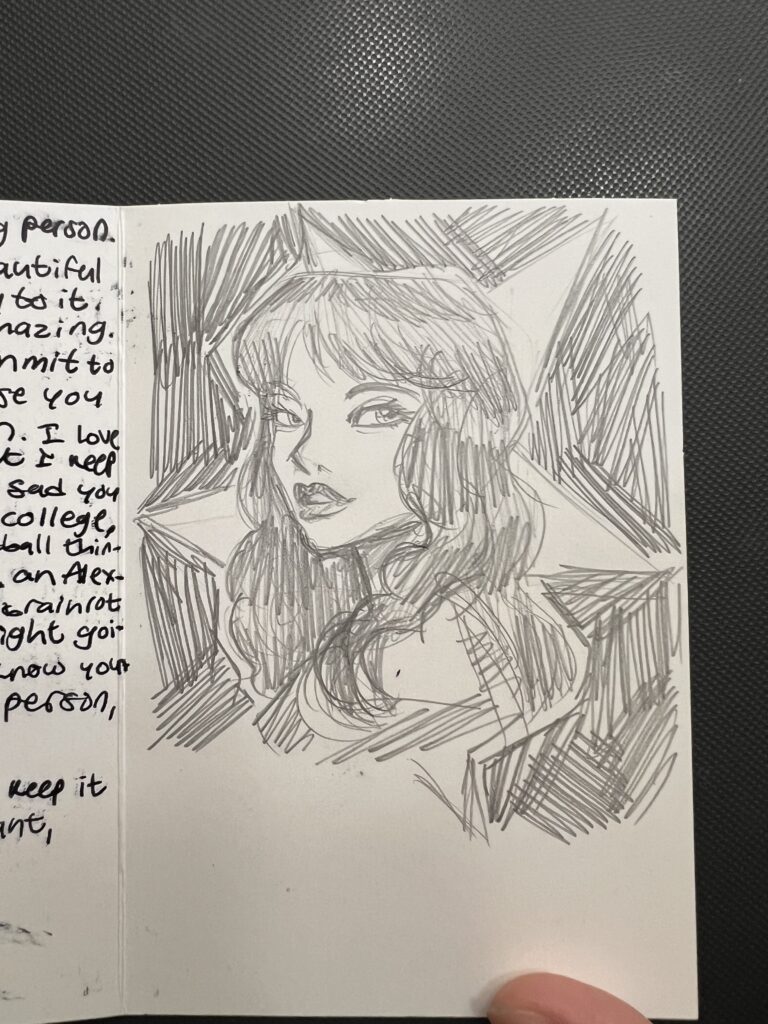 g person.
autiful
y to it.
mazing.
mmit to
se you
n. I love
t I keep
sad you
college,
ball thin-
an Alex-
brainrot
ight goi-
know your
person,
keep it
unt,